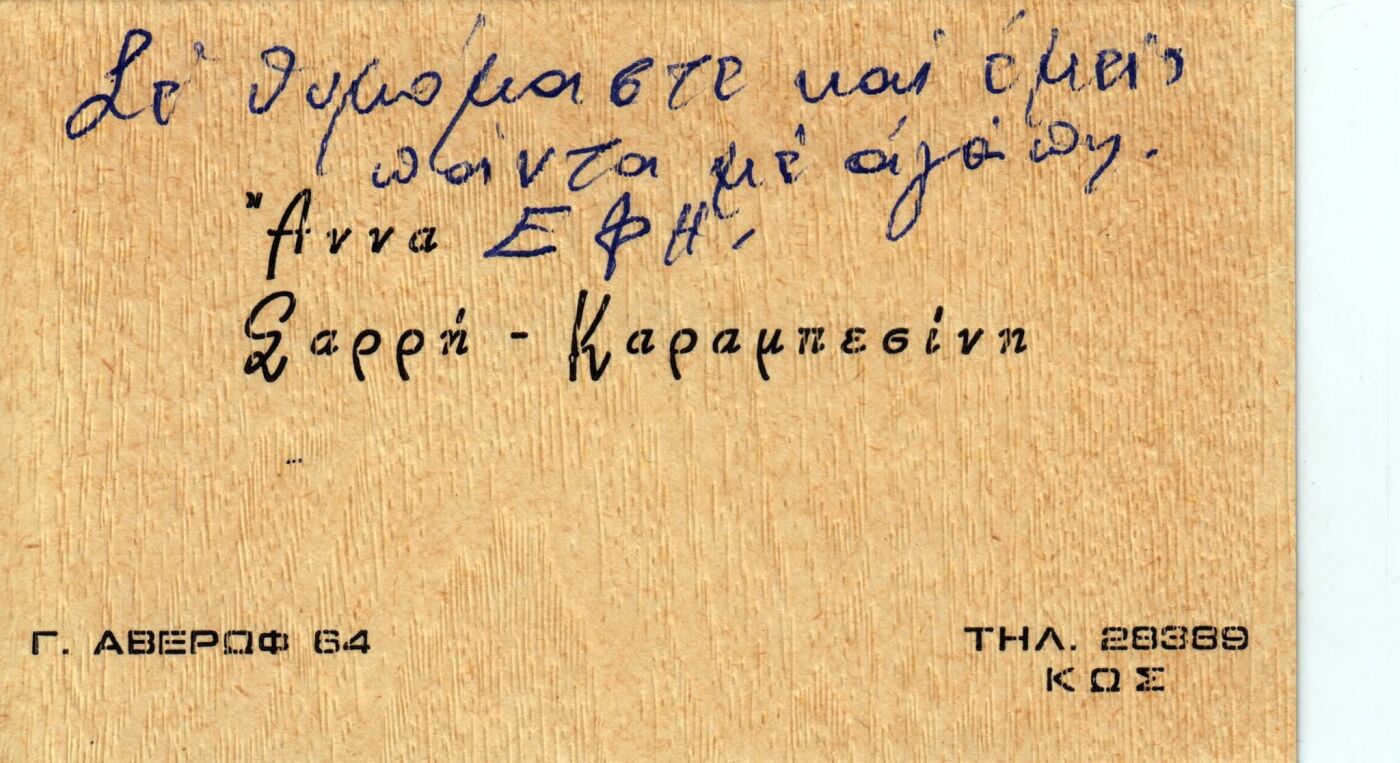 Σέ θυμόμαστε καί ἐμεῖς
πάντα μέ ἀγάπη.
Ἄννα ΕΦΗ
Σαρρή - Καραμπεσίνη
Γ. ΑΒΕΡΩΦ 64
ΤΗΛ. 28389
ΚΩΣ